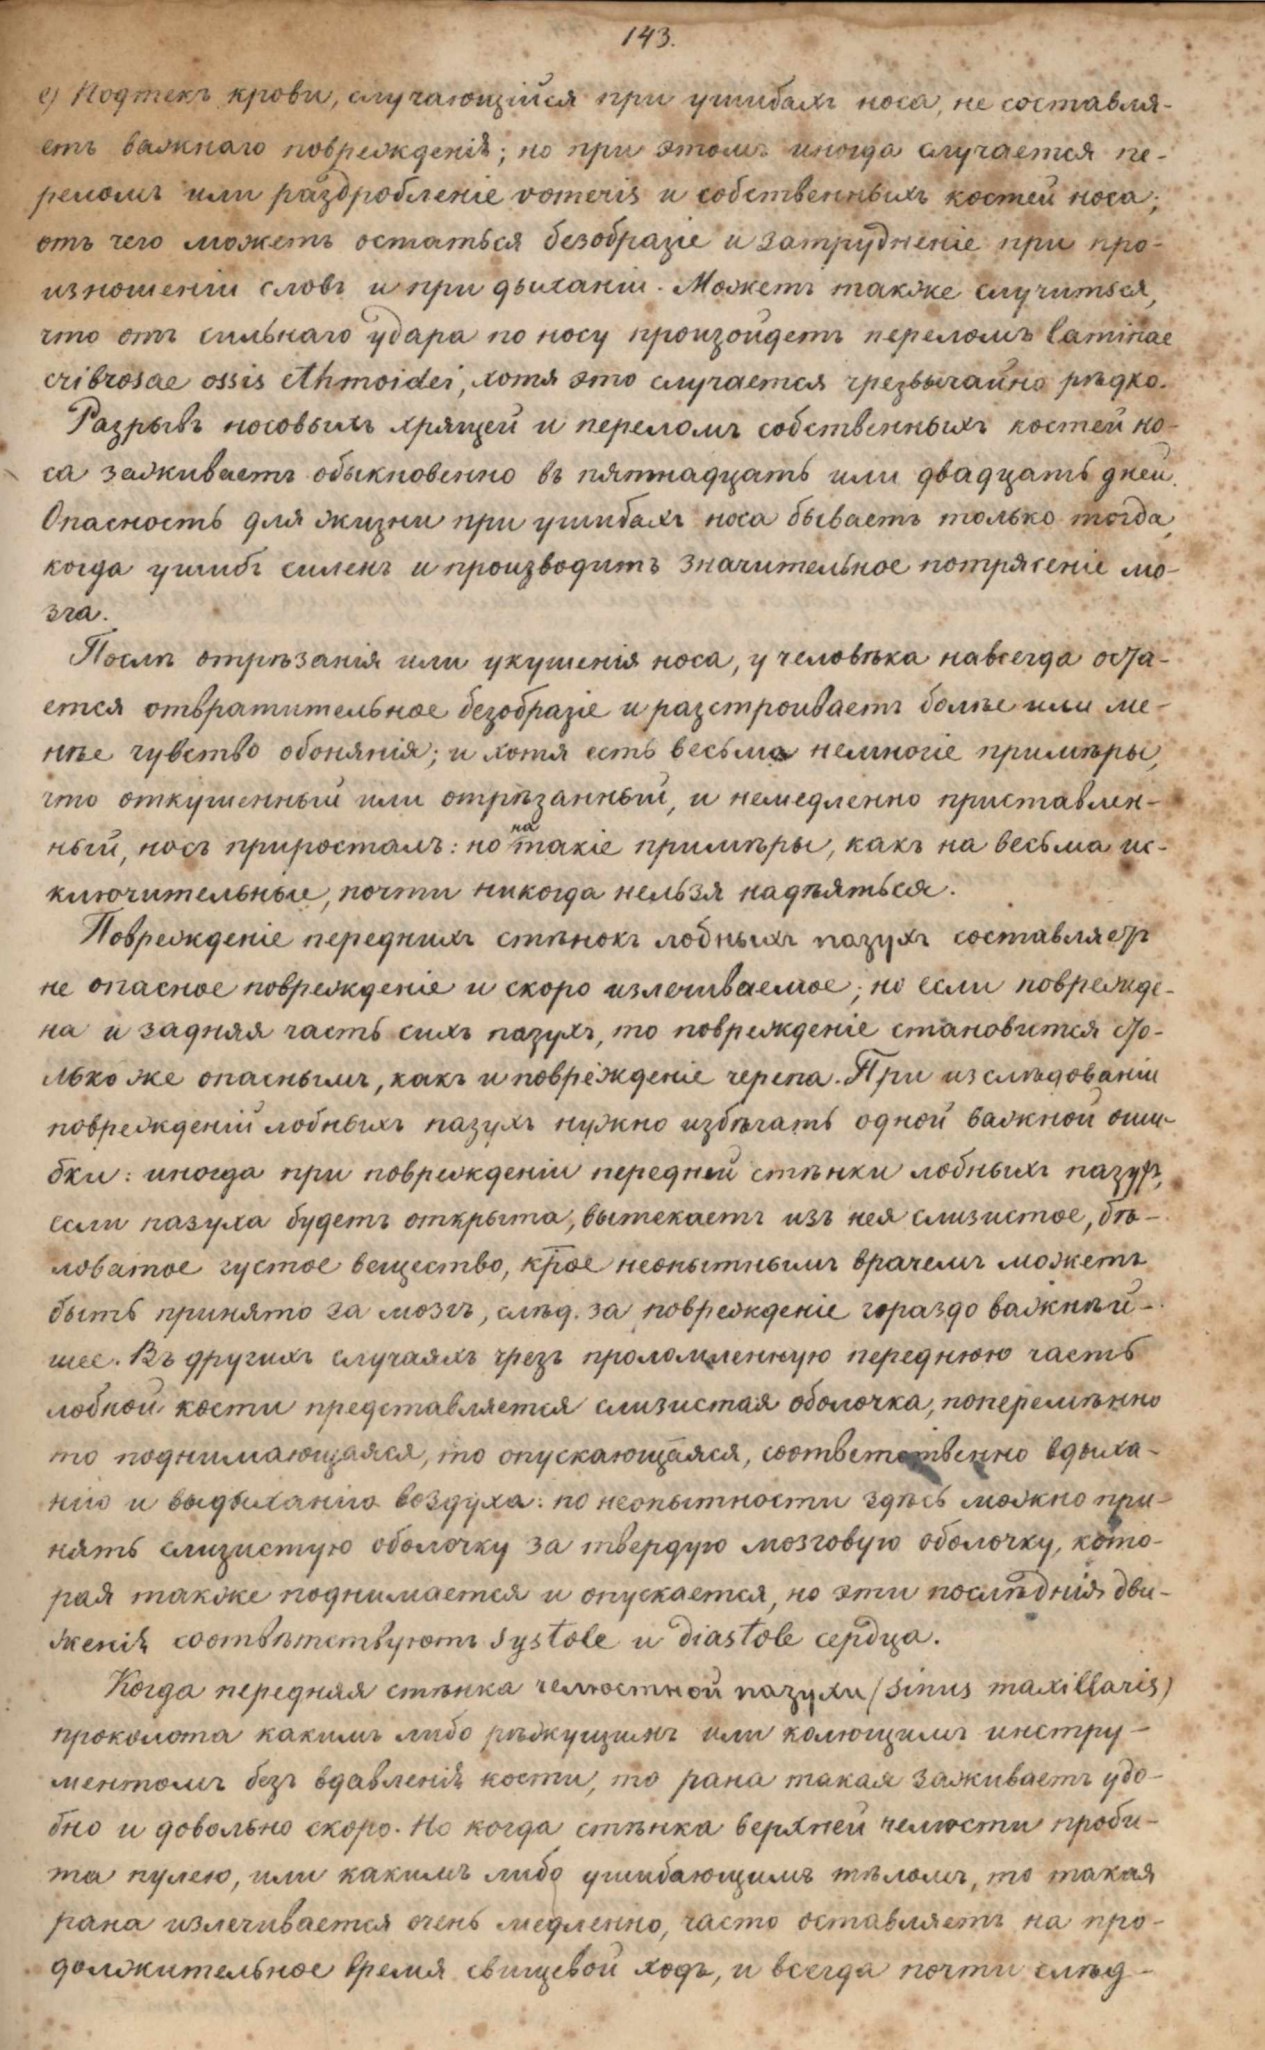 143.
е) Подтекъ крови, случающійся при ушибахъ носа, не составля-
етъ важнаго поврежденія; но при этомъ иногда случается пе-
реломъ или раздробленіе vomeris и собственныхъ костей носа;
отъ чего можетъ остаться безобразіе и затрудненіе при про-
изношеніи словъ и при дыханіи. Можетъ также случиться,
что отъ сильнаго удара по носу произойдетъ переломъ laminae
cribrosae ossis ethmoidei, хотя это случается чрезвычайно рѣдко.
Разрывъ носовыхъ хрящей и переломъ собственныхъ костей но-
са заживаетъ обыкновенно въ пятнадцать или двадцать дней.
Опасность для жизни при ушибахъ носа бываетъ только тогда,
когда ушибъ силенъ и производитъ значительное потрясеніе мо-
зга.
Послѣ отрѣзанія или укушенія носа, у человѣка навсегда оста-
ется отвратительное безобразіе и разстроиваетъ болѣе или ме-
нѣе чувство обонянія; и хотя есть весьма немногіе примѣры,
что откушенный или отрѣзанный, и немедленно приставлен-
ный, носъ приросталъ: но на такіе примѣры, какъ на весьма ис-
ключительные, почти никогда нельзя надѣяться.
Поврежденіе переднихъ стѣнокъ лобныхъ пазухъ составляетъ
не опасное поврежденіе и скоро излечиваемое; но если поврежде-
на и задняя часть сихъ пазухъ, то поврежденіе становится сто-
лько же опаснымъ, какъ и поврежденіе черепа. При изслѣдованіи
поврежденій лобныхъ пазухъ нужно избѣгать одной важной оши-
бки: иногда при поврежденіи передней стѣнки лобныхъ пазухъ,
если пазуха будетъ открыта, вытекаетъ изъ нея слизистое, бѣ-
ловатое густое вещество, крое неопытнымъ врачемъ можетъ
быть принято за мозгъ, слѣд. за поврежденіе гораздо важнѣй-
шее. Въ другихъ случаяхъ чрезъ проломленную переднюю часть
лобной кости представляется слизистая оболочка, поперемѣнно
то поднимающаяся, то опускающаяся, соответственно вдыха-
нію и выдыханію воздуха: по неопытности здѣсь можно при-
нять слизистую оболочку за твердую мозговую оболочку, кото-
рая также поднимается и опускается, но эти послѣднія дви-
женія соотвѣтствуютъ systole и diastole сердца.
Когда передняя стѣнка челюстной пазухи (sinus maxillaris)
проколота какимъ либо рѣжущимъ или колющимъ инстру-
ментомъ безъ вдавленія кости, то рана такая заживаетъ удо-
бно и довольно скоро. Но когда стѣнка верхней челюсти проби-
та пулею, или какимъ либо ушибающимъ тѣломъ, то такая
рана излечивается очень медленно, часто оставляетъ на про-
должительное время свищевой ходъ, и всегда почти слѣд-